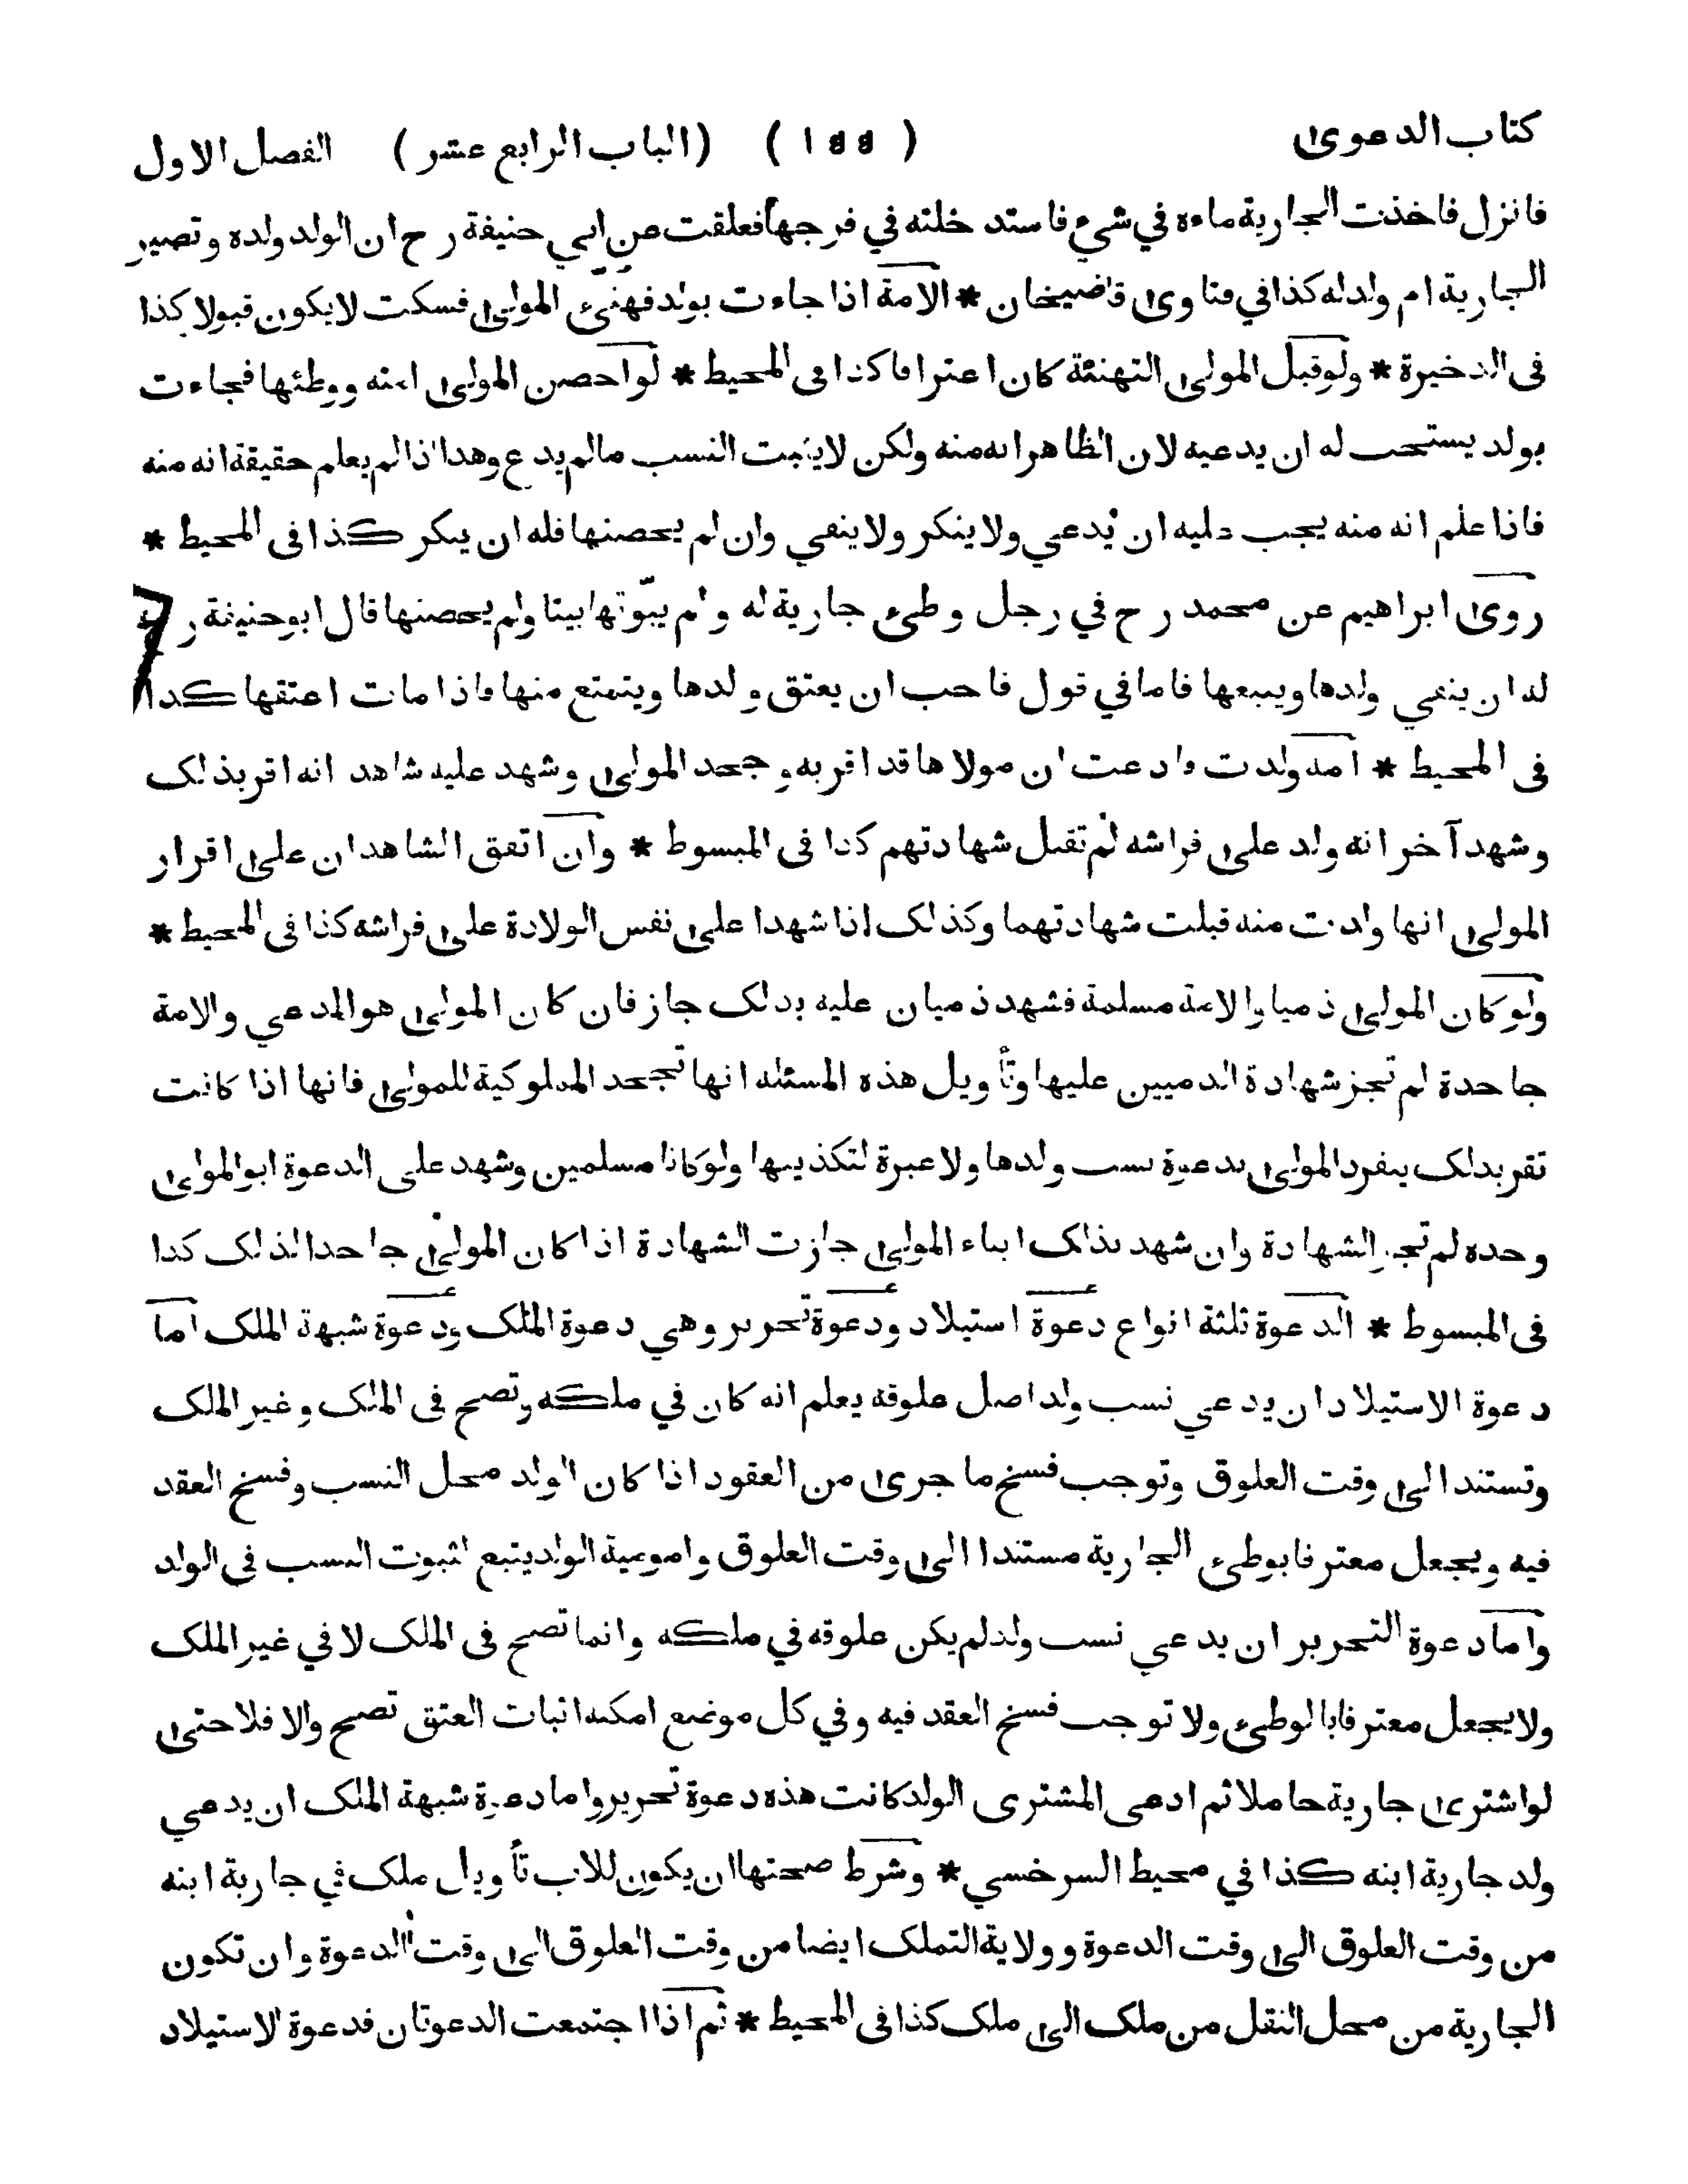 كتاب الدعوى ( ١٥٥ ) (الباب الرابع عشر) الفصل الاول
فانزل فاخذت الجارية ماءه في شيء فاستدخلته في فرجها فعلقت عن ابي حنيفة رح ان الولد ولده وتصير
الجارية ام ولد له كذا في فتاوى قاضيخان * الامة اذا جاءت بولد فهنئ المولى فسكت لا يكون قبولا كذا
فى الذخيرة * ولو قبل المولى التهنئة كان اعترافا كذا فى المحيط * لو احصن المولى امته ووطئها فجاءت
بولد يستحب له ان يدعيه لان الظاهر انه منه ولكن لا يثبت النسب مالم يدع وهذا اذا لم يعلم حقيقة انه منه
فاذا علم انه منه يجب عليه ان يدعي ولا ينكر ولا ينفي وان لم يحصنها فله ان ينكر كذا فى المحيط *
روى ابراهيم عن محمد رح في رجل وطئ جارية له ولم يبوّئها بيتا ولم يحصنها قال ابو حنيفة ر
له ان ينفي ولدها ويبيعها فاما في قول فاحب ان يعتق ولدها ويتمتع منها فاذا مات اعتقها كذا
فى المحيط * امة ولدت وادعت ان مولاها قد اقر به وجحد المولى وشهد عليه شاهد انه اقر بذلك
وشهد آخر انه ولد على فراشه لم تقبل شهادتهم كذا فى المبسوط * وان اتفق الشاهدان على اقرار
المولى انها ولدت منه قبلت شهادتهما وكذلك اذا شهدا على نفس الولادة على فراشه كذا فى المحيط *
ولو كان المولى ذميا والامة مسلمة فشهد ذميان عليه بذلك جاز فان كان المولى هو المدعي والامة
جاحدة لم تجز شهادة الذميين عليها وتأويل هذه المسئلة انها تجحد المملوكية للمولى فانها اذا كانت
تقر بذلك ينفرد المولى بدعوة نسب ولدها ولا عبرة لتكذيبها ولو كانا مسلمين وشهد على الدعوة ابو المولى
وحده لم تجز الشهادة وان شهد بذلك ابناء المولى جازت الشهادة اذا كان المولى جاحدا لذلك كذا
فى المبسوط * الدعوة ثلثة انواع دعوة استيلاد ودعوة تحرير وهي دعوة الملك ودعوة شبهة الملك اما
دعوة الاستيلاد ان يدعي نسب ولد اصل علوقه يعلم انه كان في ملكه وتصح فى الملك وغير الملك
وتستند الى وقت العلوق وتوجب فسخ ما جرى من العقود اذا كان الولد محل النسب وفسخ العقد
فيه ويجعل معترفا بوطئ الجارية مستندا الى وقت العلوق واموميـة الولد يتبع لثبوت النسب فى الولد
واما دعوة التحرير ان يدعي نسب ولد لم يكن علوقه في ملكه وانما تصح فى الملك لا في غير الملك
ولا يجعل معترفا بالوطئ ولا توجب فسخ العقد فيه وفي كل موضع امكنه اثبات العتق تصح والا فلا حتى
لو اشترى جارية حاملا ثم ادعى المشترى الولد كانت هذه دعوة تحرير واما دعوة شبهة الملك ان يدعي
ولد جارية ابنه كذا في محيط السرخسي * وشرط صحتها ان يكون للاب تأويل ملك في جارية ابنه
من وقت العلوق الى وقت الدعوة وولاية التملك ايضا من وقت العلوق الى وقت الدعوة وان تكون
الجارية من محل النقل من ملك الى ملك كذا فى المحيط * ثم اذا اجتمعت الدعوتان فدعوة الاستيلاد